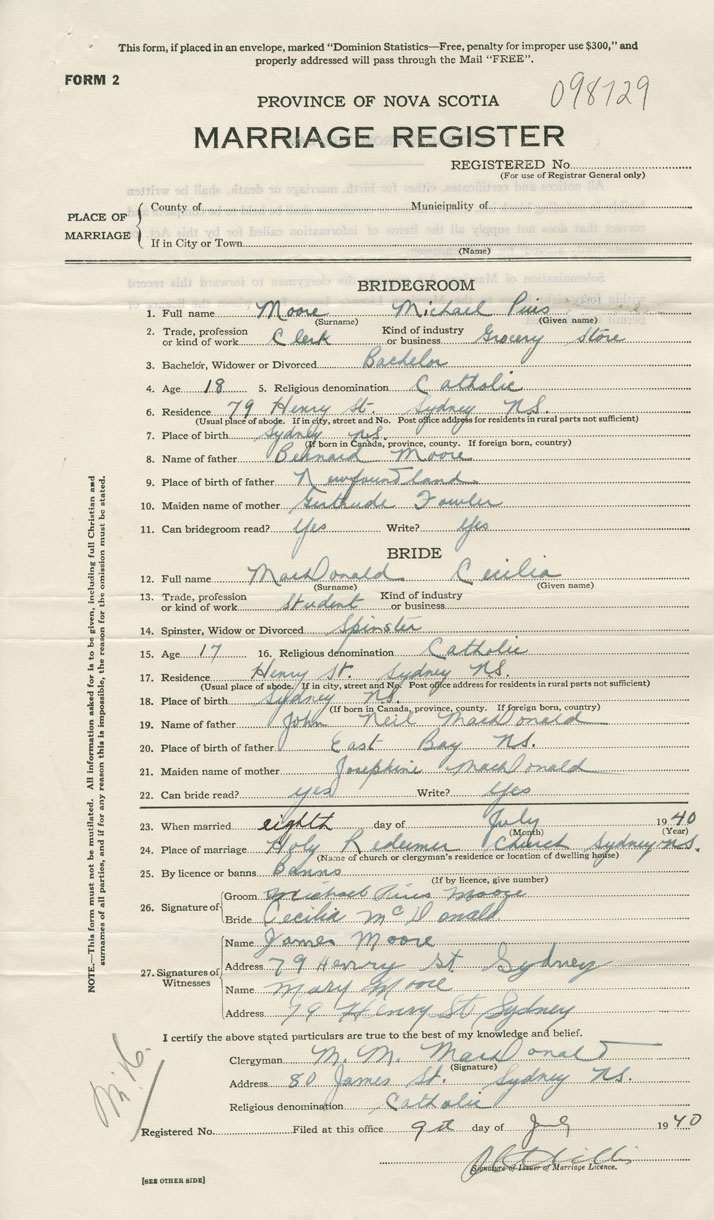 This form, if placed in an envelope, marked "Dominion Statistics—Free, penalty for improper use $300," and
properly addressed will pass through the Mail "FREE".
FORM 2
098729
PROVINCE OF NOVA SCOTIA
MARRIAGE REGISTER
REGISTERED No.
(For use of Registrar General only)
PLACE OF MARRIAGE
County of Municipality of
If in City or Town
(Name)
BRIDEGROOM
1. Full name Moore Michael Pius
(Surname) (Given name)
2. Trade, profession or kind of work Clerk Kind of industry or business Grocery Store
3. Bachelor, Widower or Divorced Bachelor
4. Age 18 5. Religious denomination Catholic
6. Residence 79 Henry St. Sydney NS.
(Usual place of abode. If in city, street and No. Post office address for residents in rural parts not sufficient)
7. Place of birth Sydney NS.
(If born in Canada, province, county. If foreign born, country)
8. Name of father Bernard Moore
9. Place of birth of father Newfoundland
10. Maiden name of mother Gertrude Fowler
11. Can bridegroom read? Yes Write? Yes
BRIDE
12. Full name MacDonald Cecilia
(Surname) (Given name)
13. Trade, profession or kind of work Student Kind of industry or business
14. Spinster, Widow or Divorced Spinster
15. Age 17 16. Religious denomination Catholic
17. Residence Henry St. Sydney NS.
(Usual place of abode. If in city, street and No. Post office address for residents in rural parts not sufficient)
18. Place of birth Sydney NS.
(If born in Canada, province, county. If foreign born, country)
19. Name of father John Neil MacDonald
20. Place of birth of father East Bay NS.
21. Maiden name of mother Josephine MacDonald
22. Can bride read? yes Write? Yes
23. When married eighth day of July 1940
(Month) (Year)
24. Place of marriage Holy Redeemer Church Sydney N.S.
(Name of church or clergyman's residence or location of dwelling house)
25. By licence or banns Banns
(If by licence, give number)
26. Signature of
Groom Michael Pius Moore
Bride Cecilia McDonald
27. Signatures of Witnesses
Name James Moore
Address 79 Henry St Sydney
Name Mary Moore
Address 79 Henry St Sydney
I certify the above stated particulars are true to the best of my knowledge and belief.
Clergyman M. M. MacDonald
(Signature)
Address 80 James St. Sydney NS.
Religious denomination Catholic
Registered No. Filed at this office 9th day of July 1940
Signature of Issuer of Marriage Licence.
[SEE OTHER SIDE]
NOTE.—This form must not be mutilated. All information asked for is to be given, including full Christian and
surnames of all parties, and if for any reason this is impossible, the reason for the omission must be stated.